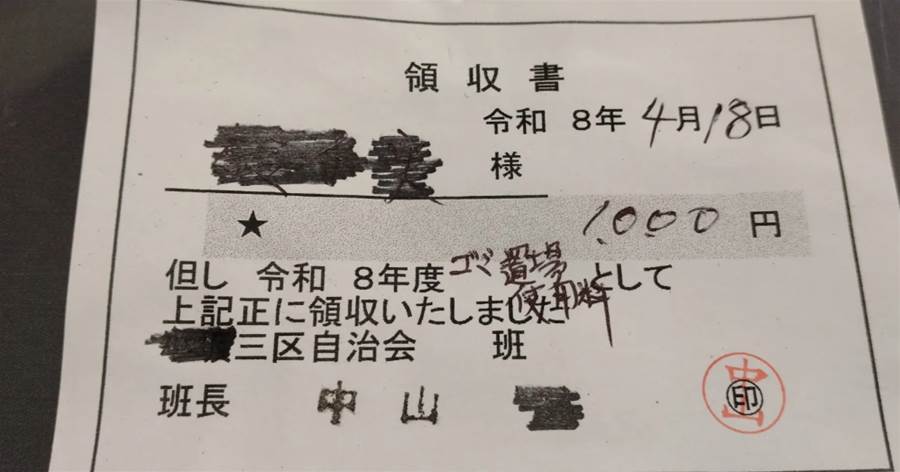 領収書
令和 8年 4月18日
様
★ 1,000 円
但し 令和 8年度 ゴミ置場使用料 として
上記正に領収いたしました
三区自治会 班
班長 中山
中山
印